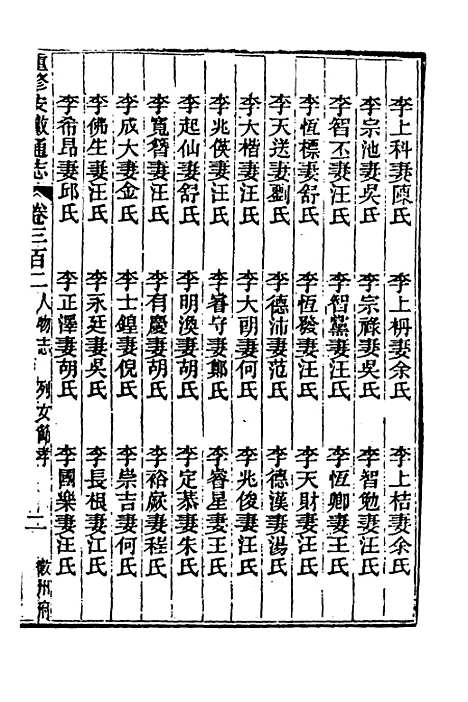 李上科妻陳氏 李上枬妻余氏 李上桔妻余氏
李宗池妻吳氏 李宗祿妻吳氏 李智勉妻汪氏
李智丕妻汪氏 李智黨妻汪氏 李恆卿妻王氏
李恆標妻舒氏 李恆 妻汪氏 李天財妻汪氏
李天送妻劉氏 李德沛妻范氏 李德漢妻湯氏
李大楷妻汪氏 李大朋妻何氏 李兆俊妻汪氏
李兆僕妻汪氏 李睿守妻鄭氏 李睿星妻王氏
李起仙妻舒氏 李明渙妻胡氏 李定恭妻朱氏
李寬 妻汪氏 李有慶妻胡氏 李裕厥妻程氏
李成大妻金氏 李士鍠妻倪氏 李崇吉妻何氏
李佛生妻汪氏 李永廷妻吳氏 李長根妻江氏
李希昂妻邱氏 李正澤妻胡氏 李國樂妻汪氏
重修安徽通志 卷三百二 人物志 列女 節孝 二 徽州府